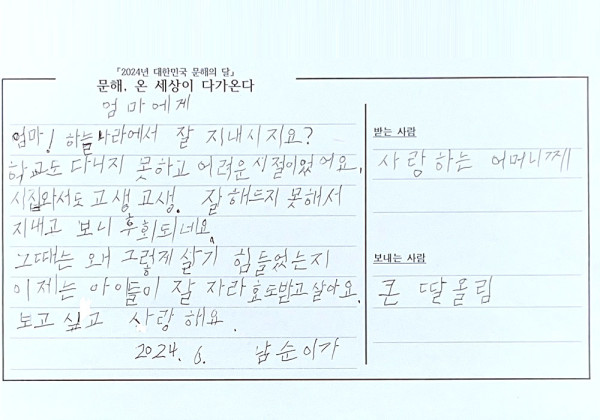 『2024년 대한민국 문해의 달』
문해, 온 세상이 다가온다
엄마에게
엄마! 하늘나라에서 잘 지내시지요?
학교도 다니지 못하고 어려운 시절이었어요.
시집와서도 고생 고생. 잘 해드지 못해서
지내고 보니 후회되네요
그때는 왜 그렇게 살기 힘들었는지
이제는 아이들이 잘 자라 효도받고 살아요.
보고 싶고 사랑해요.
2024. 6. 남순이가
받는 사람
사랑하는 어머니께
보내는 사람
큰 딸 올림